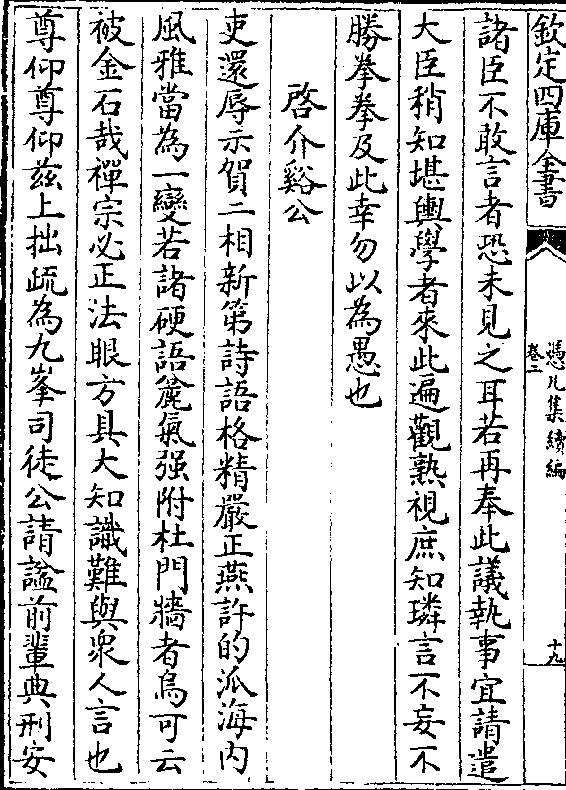 欽定四庫全書
憑几集續編
卷二
十九
諸臣不敢言者恐未見之耳若再奉此議執事宜請遣
大臣稍知堪輿學者來此遍觀熟視庶知璘言不妄不
勝拳拳及此幸勿以為愚也
啓介谿公
吏還辱示賀二相新第詩語格精嚴正燕許的派海内
風雅當為一變若諸硬語麄氣强附杜門牆者烏可云
被金石哉禪宗必正法眼方具大知識難與衆人言也
尊仰尊仰兹上拙疏為九峯司徒公請諡前輩典刑安